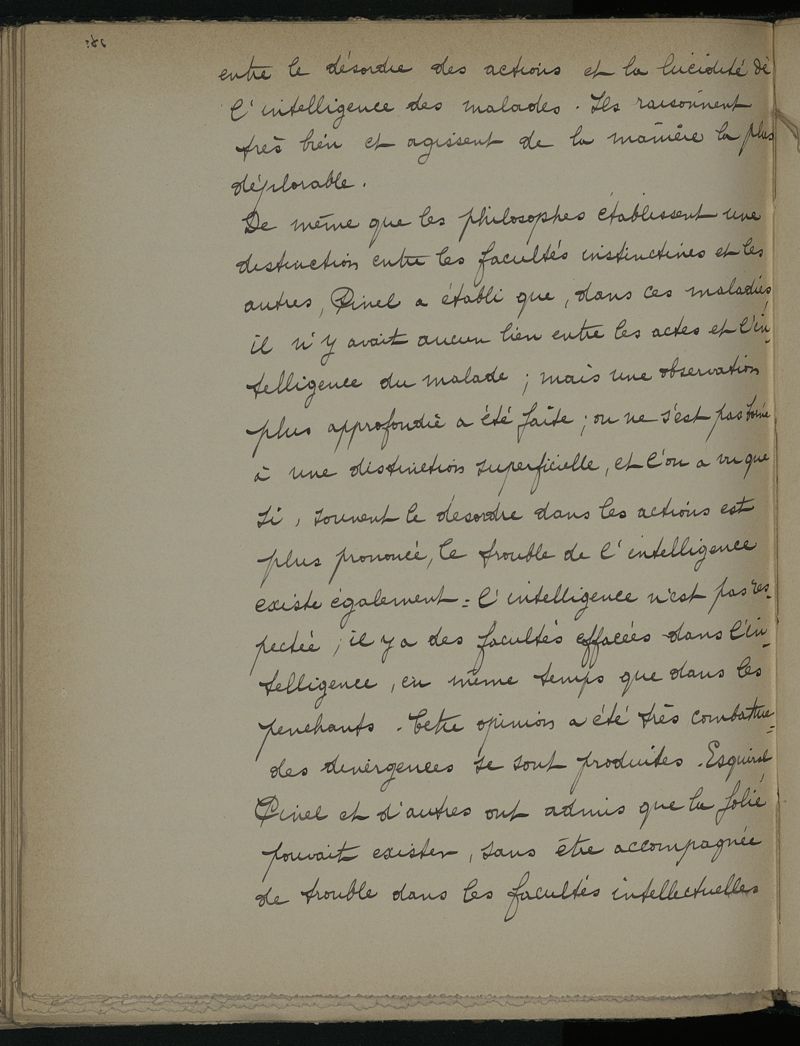 entre le désordre des actions et la lucidité de
l'intelligence des malades. Ils raisonnent
très bien et agissent de la manière la plus
déplorable.
De même que les philosophes établissent une
distinction entre les facultés instinctives et les
autres, Pinel a établi que, dans ces maladies
il n'y avait aucun lien entre les actes et l'in-
telligence du malade ; mais une observation
plus approfondie a été faite ; on ne s'est pas borné
à une distinction superficielle, et l'on a vu que
si, souvent le désordre dans les actions est
plus prononcé, le trouble de l'intelligence
existe également = l'intelligence n'est pas res-
pectée ; il y a des facultés effacées dans l'in-
telligence, en même temps que dans les
penchants. Cette opinion a été très combattue =
des divergences se sont produites. Esquirol
Pinel et d'autres ont admis que la folie
pouvait exister, sans être accompagnée
de trouble dans les facultés intellectuelles